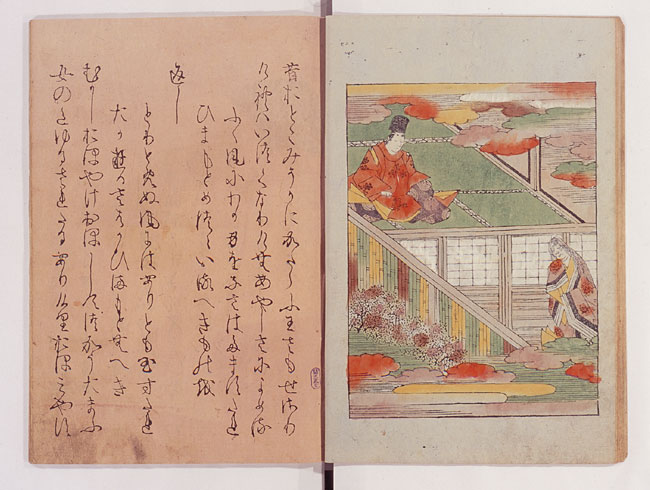 昔おとこみそかにかたらふわさもせさり
けれはいつくなりけむあやしさによめる
ふく風にわか身をなさは玉すたれ
ひまもとめつゝいるへきものを
返し
とりとめぬ風にはありとも玉すたれ
たかゆるさはかひまもとむへき
むかしおほやけおほしてつかう給ふ
女のいろゆるされたるありけりおほみやす